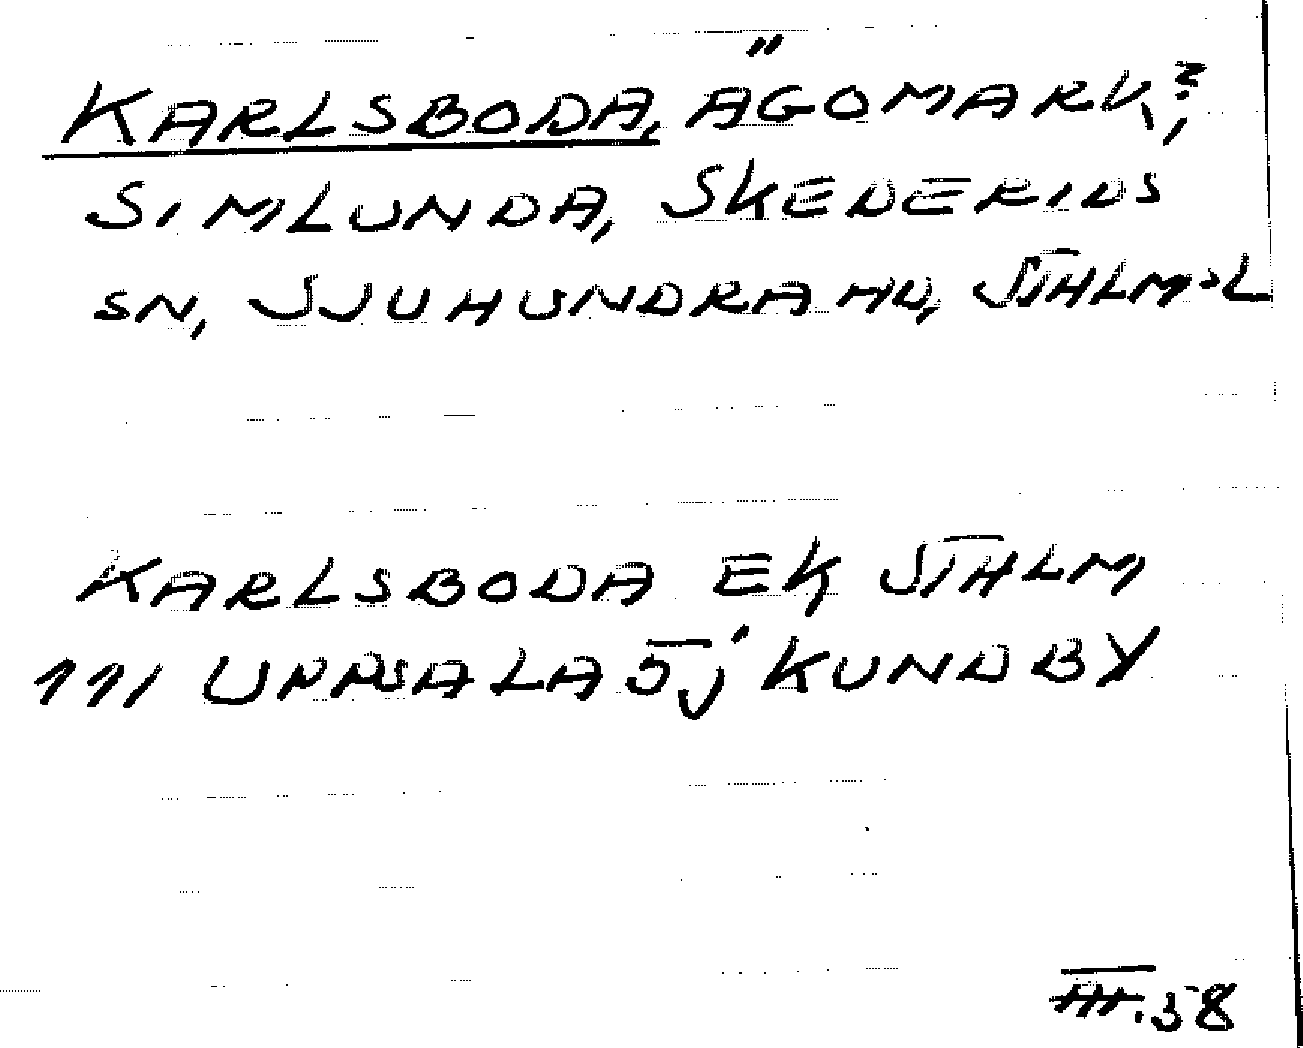 KARLSBODA, ÄGOMARK?,
SIMLUNDA, SKEDERIDS
SN, SJUHUNDRA HD, STHLMSL
KARLSBODA EK STHLM
111 UPPSALA 5j KUNDBY
III.58